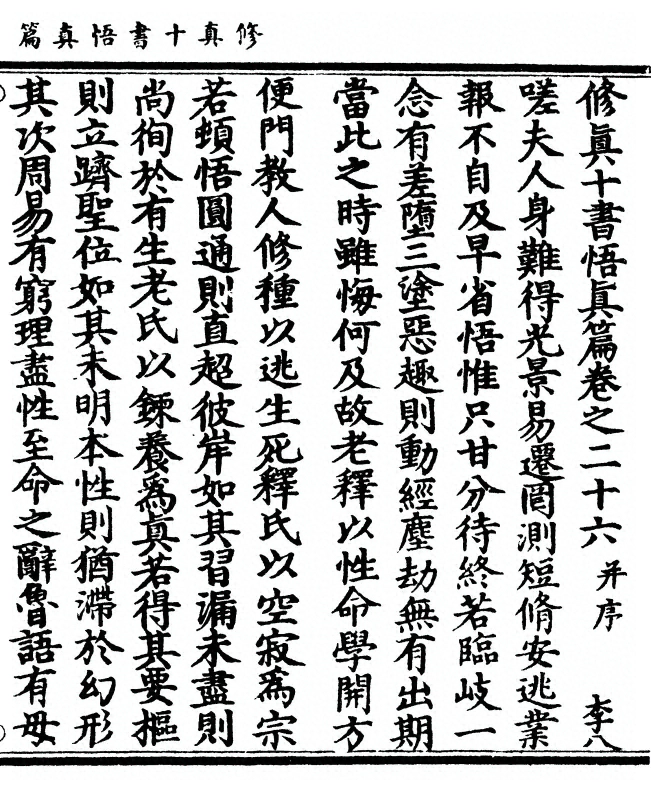 修真十書悟真篇
修真十書悟真篇卷之二十六 并序 李八
嗟夫人身難得光景易遷罔測短脩安逃業
報不自及早省悟惟只甘分待終若臨岐一
念有差墮三塗惡趣則動經塵劫無有出期
當此之時雖悔何及故老釋以性命學開方
便門教人修種以逃生死釋氏以空寂為宗
若頓悟圓通則直超彼岸如其習漏未盡則
尚徇於有生老氏以鍊養為真若得其要樞
則立躋聖位如其未明本性則猶滯於幻形
其次周易有窮理盡性至命之辭魯語有毋